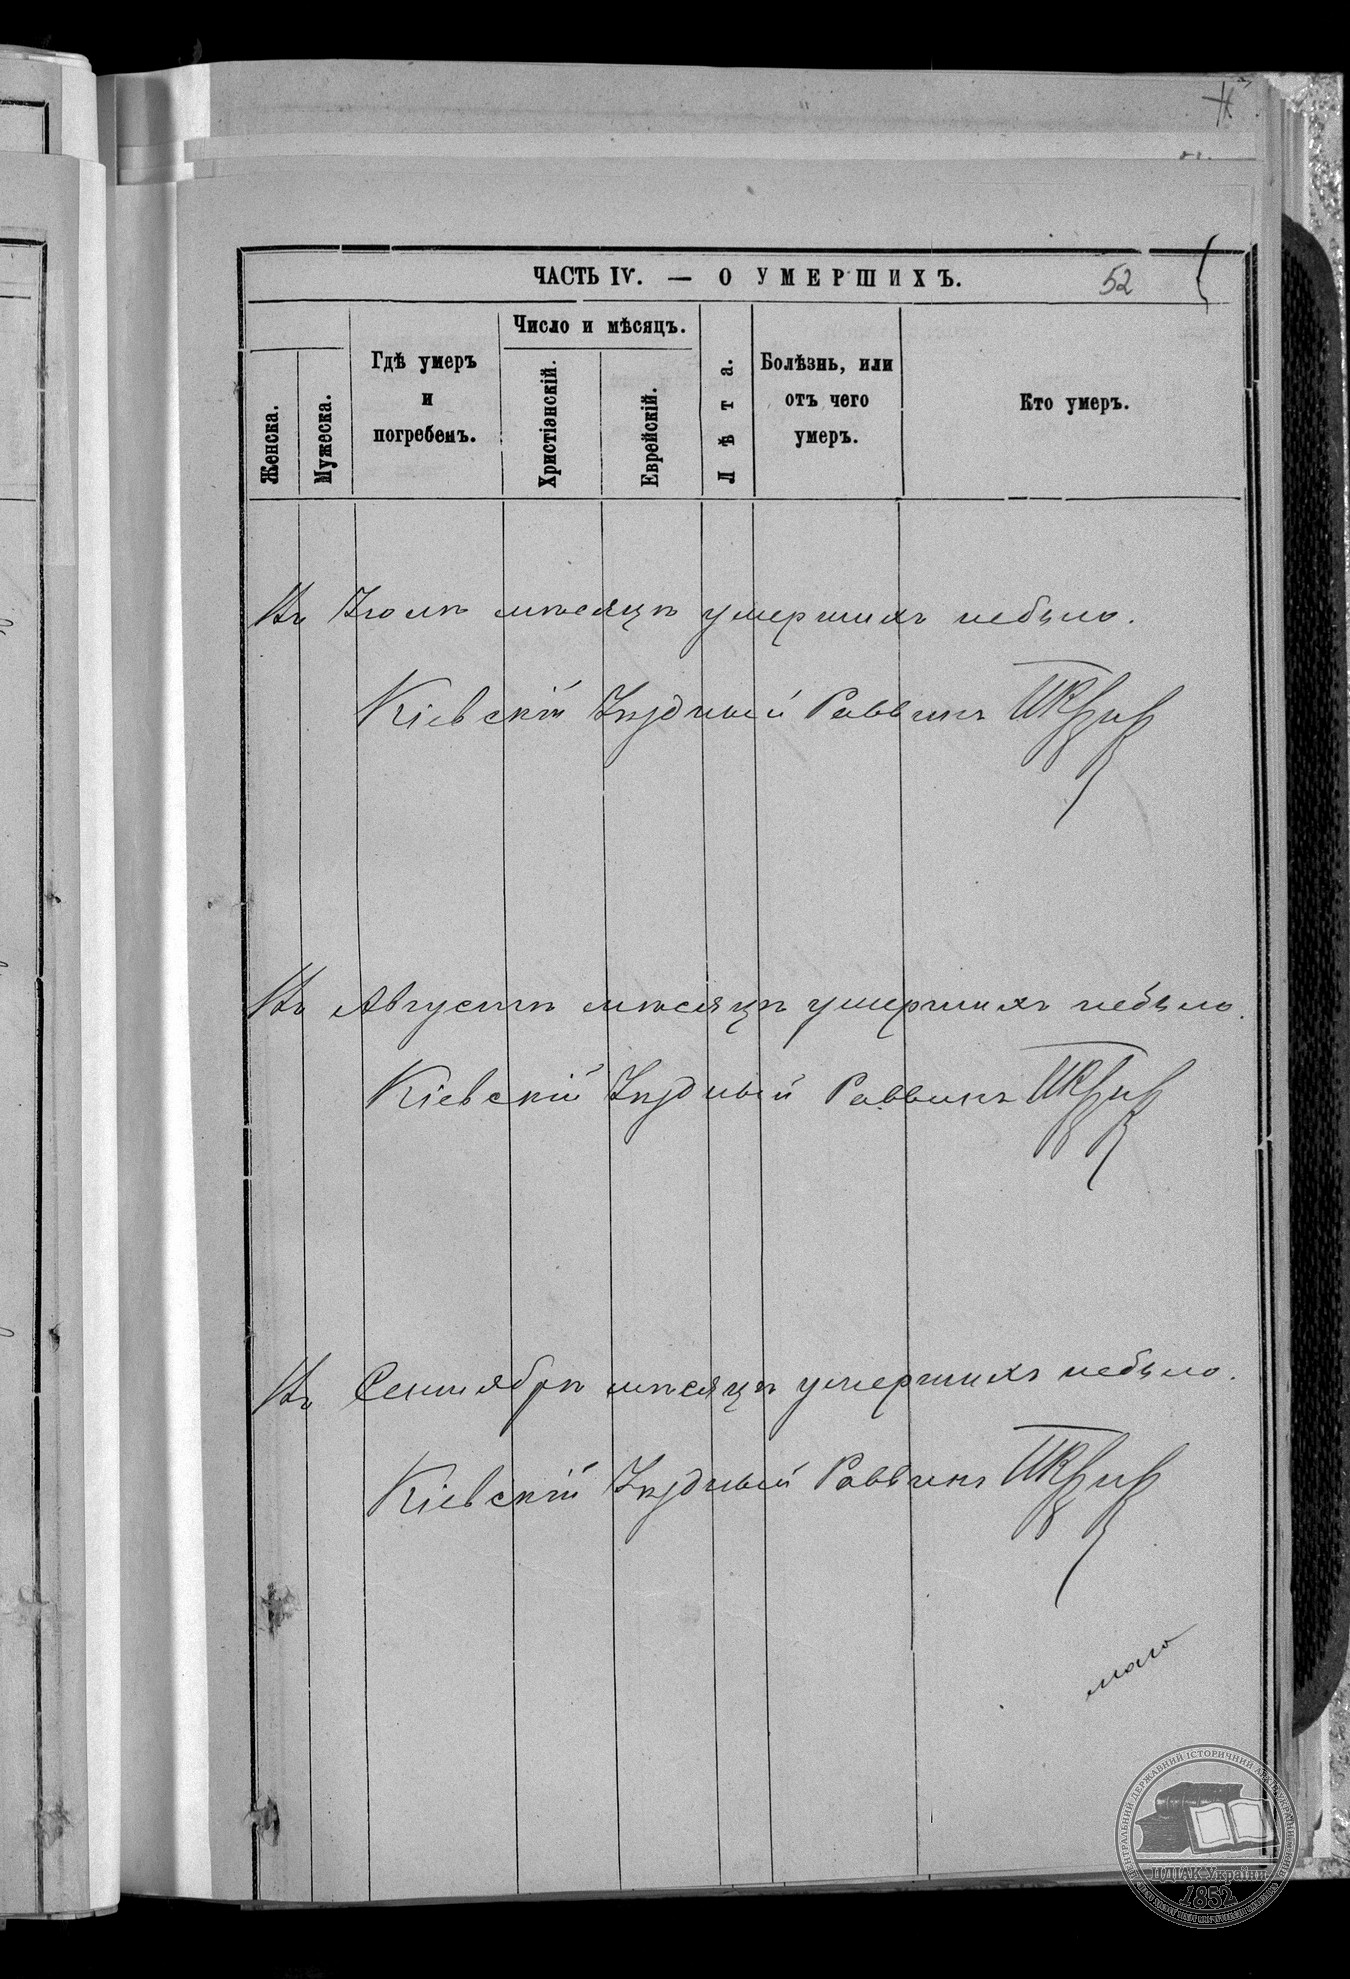 52
ЧАСТЬ IV. — О УМЕРШИХЪ.
Женска.
Мужеска.
Гдѣ умеръ
и
погребенъ.
Число и мѣсяцъ.
Христіанскій.
Еврейскій.
Лѣта.
Болѣзнь, или
отъ чего
умеръ.
Кто умеръ.
Въ Іюлѣ мѣсяцѣ умершихъ небыло.
Кіевскій Уѣздный Раввинъ
Въ Августѣ мѣсяцѣ умершихъ небыло.
Кіевскій Уѣздный Раввинъ
Въ Сентябрѣ мѣсяцѣ умершихъ небыло.
Кіевскій Уѣздный Раввинъ
ЦЕНТРАЛЬНИЙ ДЕРЖАВНИЙ ІСТОРИЧНИЙ АРХІВ УКРАЇНИ
ЦДІАК України
1852